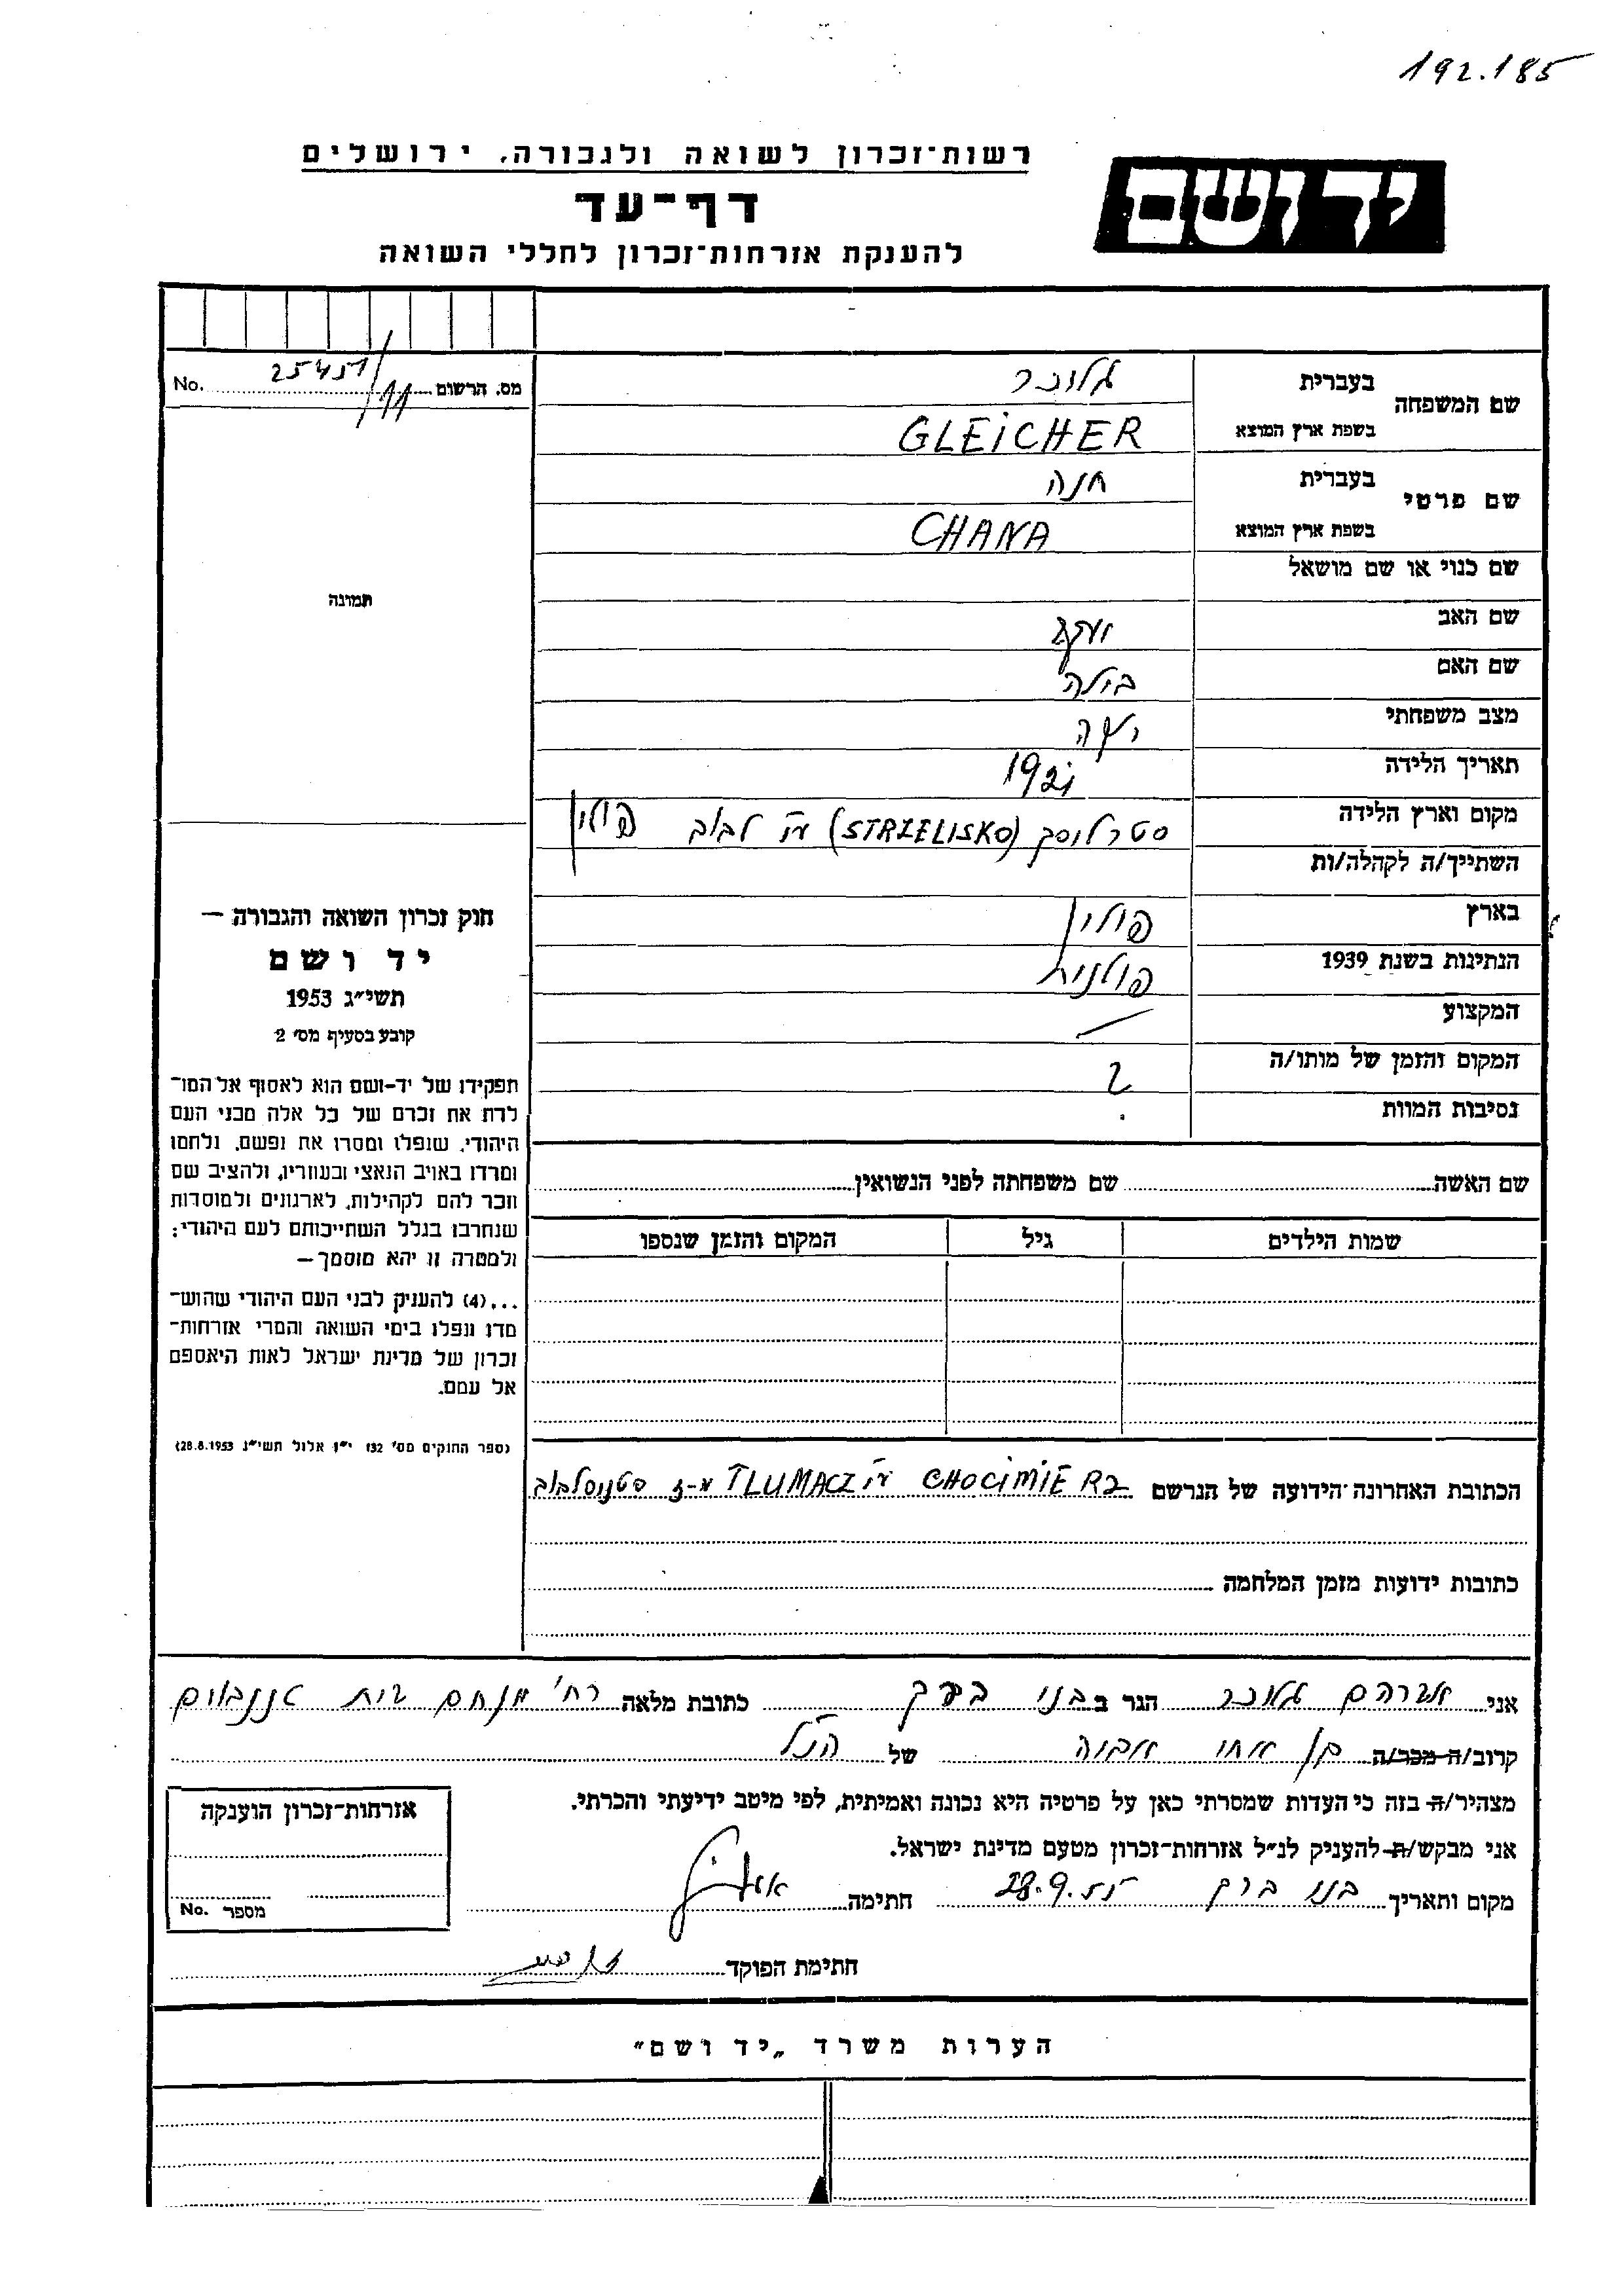 192.185
רשות־זכרון לשואה ולגבורה, ירושלים
יד ושם
דף־עד
להענקת אזרחות־זכרון לחללי השואה
מס. הרשום 25451/11 No.
שם המשפחה
בעברית גליכר
בשפת ארץ המוצא GLEiCHER
שם פרטי
בעברית חנה
בשפת ארץ המוצא CHANA
שם כנוי או שם מושאל
שם האב יעקב
שם האם בילה
מצב משפחתי
תאריך הלידה 1921
מקום וארץ הלידה סטרליסק (STRZELISKO) ע"י לבוב פולין
השתייך/ה לקהלה/ות
בארץ פולין
הנתינות בשנת 1939 פולנית
המקצוע —
המקום והזמן של מותו/ה ?
נסיבות המוות
שם האשה שם משפחתה לפני הנשואין
שמות הילדים גיל המקום והזמן שנספו
תמונה
חוק זכרון השואה והגבורה —
יד ושם
תשי״ג 1953
קובע בסעיף מס׳ 2
תפקידו של יד־ושם הוא לאסוף אל המו־
לדת את זכרם של כל אלה מבני העם
היהודי, שנפלו ומסרו את נפשם, נלחמו
ומרדו באויב הנאצי ובעוזריו, ולהציב שם
וזכר להם לקהילות, לארגונים ולמוסדות
שנחרבו בגלל השתייכותם לעם היהודי;
ולמטרה זו יהא מוסמך —
...(4) להעניק לבני העם היהודי שהוש־
מדו ונפלו בימי השואה והמרי אזרחות־
זכרון של מדינת ישראל לאות היאספם
אל עמם.
(ספר החוקים מס׳ 132 י״ז אלול תשי״ג 28.8.1953)
הכתובת האחרונה הידועה של הנרשם CHOCiMiERZ ע"י TLUMACZ ע-י סטניסלבוב
כתובות ידועות מזמן המלחמה
אני אברהם גליכר הגר ב בני ברק כתובת מלאה רח' מנחם בית טננבוים
קרוב/ה מכר/ה בן אחי אביה של הנ"ל
מצהיר/ה בזה כי העדות שמסרתי כאן על פרטיה היא נכונה ואמיתית, לפי מיטב ידיעתי והכרתי.
אני מבקש/ת להעניק לנ״ל אזרחות־זכרון מטעם מדינת ישראל.
מקום ותאריך בני ברק 28.9.55 חתימה
חתימת הפוקד
אזרחות־זכרון הוענקה
מספר No.
הערות משרד „יד ושם״